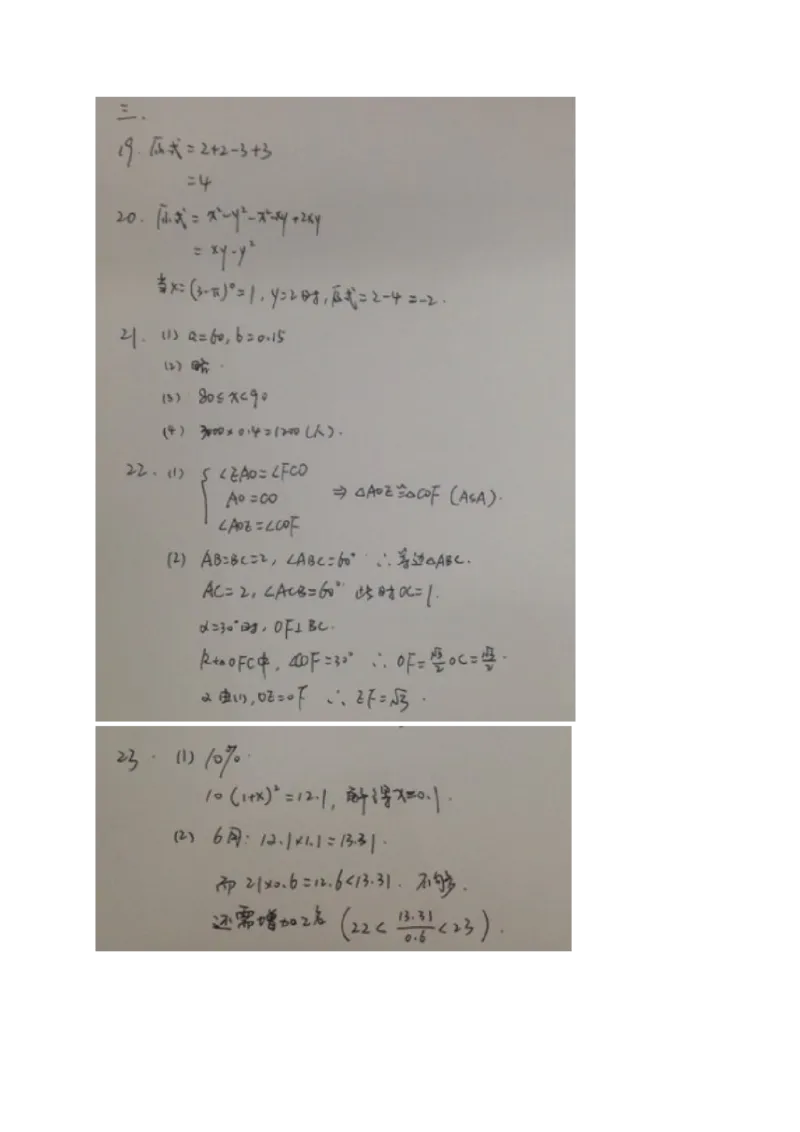 三.
19. 原式=2+2-3+3
=4
20. 原式= x²-y²-x²-xy+2xy
= xy-y²
当x=(3-π)⁰=1, y=2时, 原式=2-4=-2.
21. (1) a=60, b=0.15
(2) 略.
(3) 80≤x<90
(4) 3000×0.4=1200(人).
22. (1) { ∠EAO=∠FCO
AO=CO ⇒ △AOE≌△COF (ASA).
∠AOE=∠COF
(2) AB=BC=2, ∠ABC=60° ∴等边△ABC.
AC=2, ∠ACB=60° 此时OC=1.
α=30°时, OF⊥BC.
Rt△OFC中, ∠COF=30° ∴ OF=√3/2 OC=√3/2.
又由(1), OE=OF ∴ EF=√3.
23. (1) 10%.
10(1+x)²=12.1, 解得x=0.1.
(2) 6月: 12.1×1.1=13.31.
而21×0.6=12.6<13.31. 不够.
还需增加2名 (22< 13.31/0.6 <23).